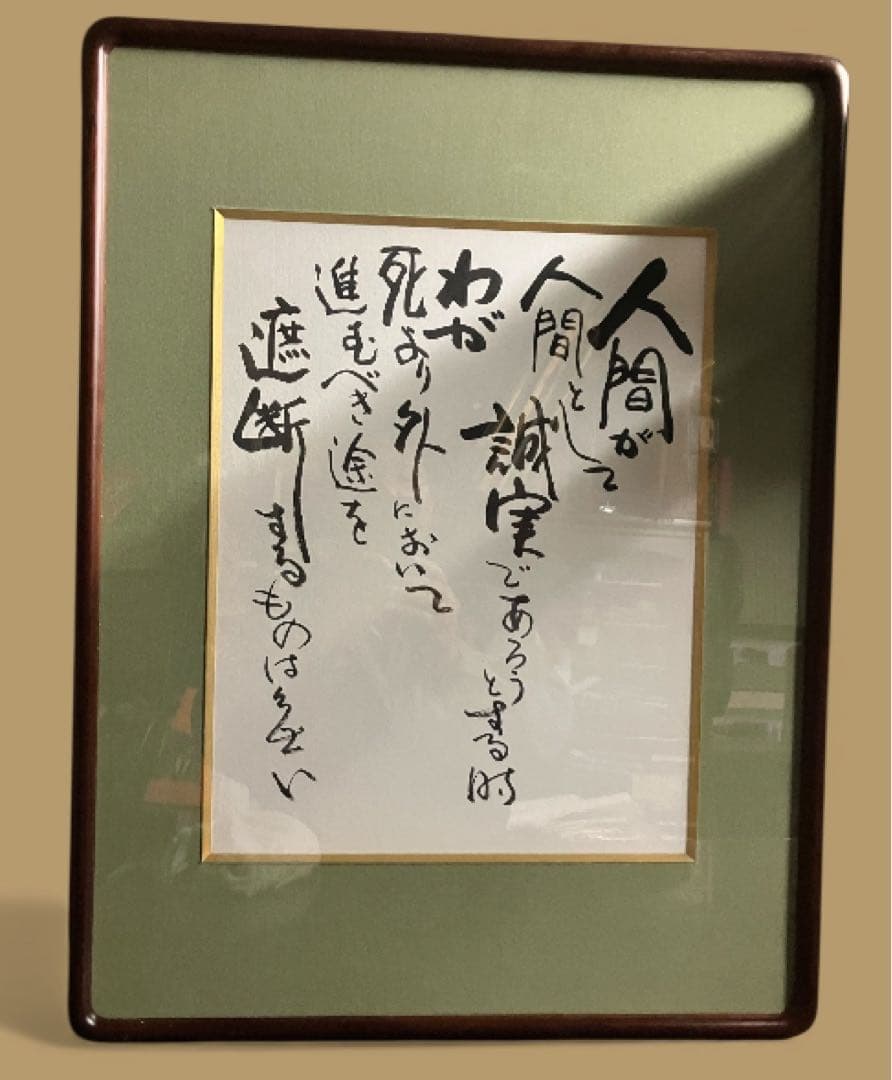 人間が
人間として
誠実であろうとする時
わが
死より外において
進むべき途を
遮断するものは無い